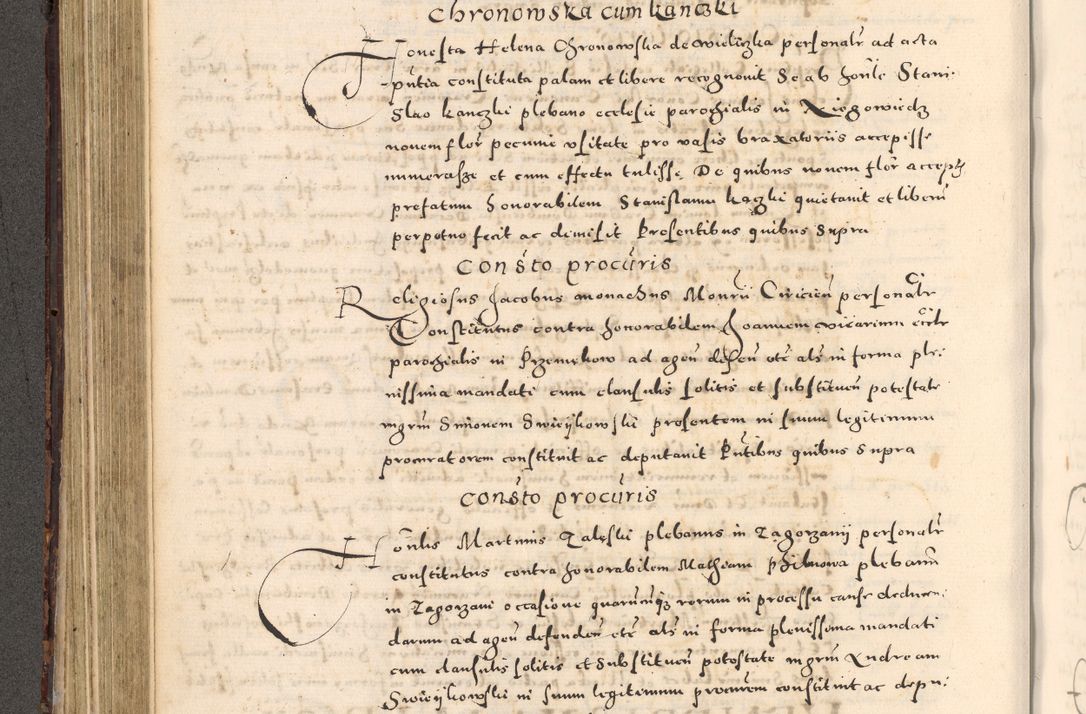 Chronowska cum kanczki
Honesta Helena Chronowska de wieliczka personalr ad acta
pñtia constituta palam et libere recognouit Se ab honle Stani-
Slao kanczki plebano ecclesie parochialis in Xiegowiedz
nouem flor pecunie vsitate pro vasis braxatoriis accepisse
numerasze et cum effectu tulisse De quibus nouem flor accept
prefatum honorabilem Stanislaum kaczki quietauit et liberu
perpetuo fecit ac dimisit Presentibus quibus supra
Consto procuris
Religiosus Jacobus monachus Monrii Ciricien personalr
Constitutus contra honorabilem Joannem vicarium eccle
parochialis in Przemekow ad agen defen etc als in forma ple-
nissima mandati cum clausulis solitis et substituen potestate
mgrm Simonem Swieykowski presentem in suum legitimum
procuratorem constituit ac deputauit Pntibus quibus supra
Consto procuris
Honlis Martinus Zaleski plebanus in Zagorzany personalr
constitutus contra honorabilem Matheum plebanum
in Zagorzani occasione quarumcuque rerum in processu cause deducen-
darum ad agen defenden etc als in forma plenissima mandati
cum clausulis solitis et substituen potestate mgrm Andream
Swieykowski in suum legitimum procurem constituit ac depu-